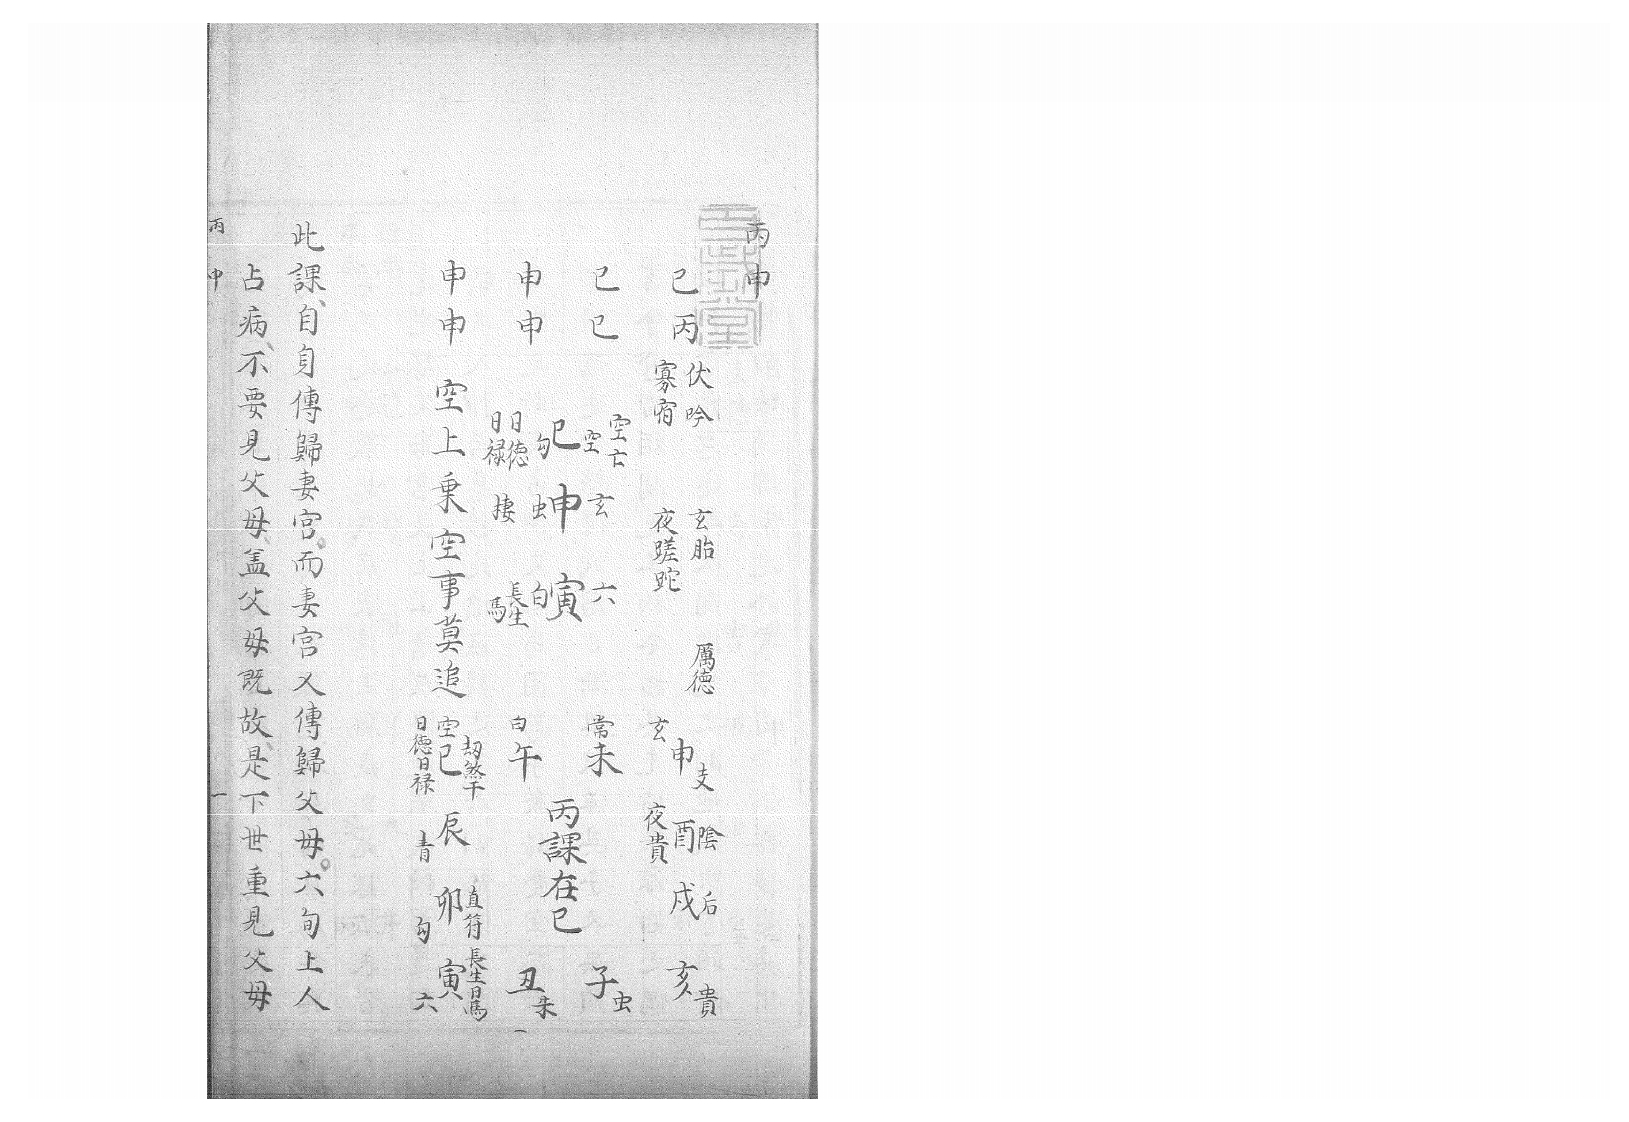 丙申
己丙 伏吟 寡宿 玄胎 夜蹉跎 厲德 玄申支 夜貴酉陰 戌后 亥貴
巳巳 空亡 空 玄 六 常未 子虫
巳 申 寅 丙課在巳
申申 勾 虫 白 日德 日祿 捿 長生 馬 白午 丑朱
申申 空上乘空事莫追 劫煞干 空巳 日德日祿 辰青 直符 卯勾 長生日馬 寅六
此課、自身傳歸妻宮。而妻宮又傳歸父母。六旬上人
占病、不要見父母、盖父母既故、是下世重見父母
丙申 一